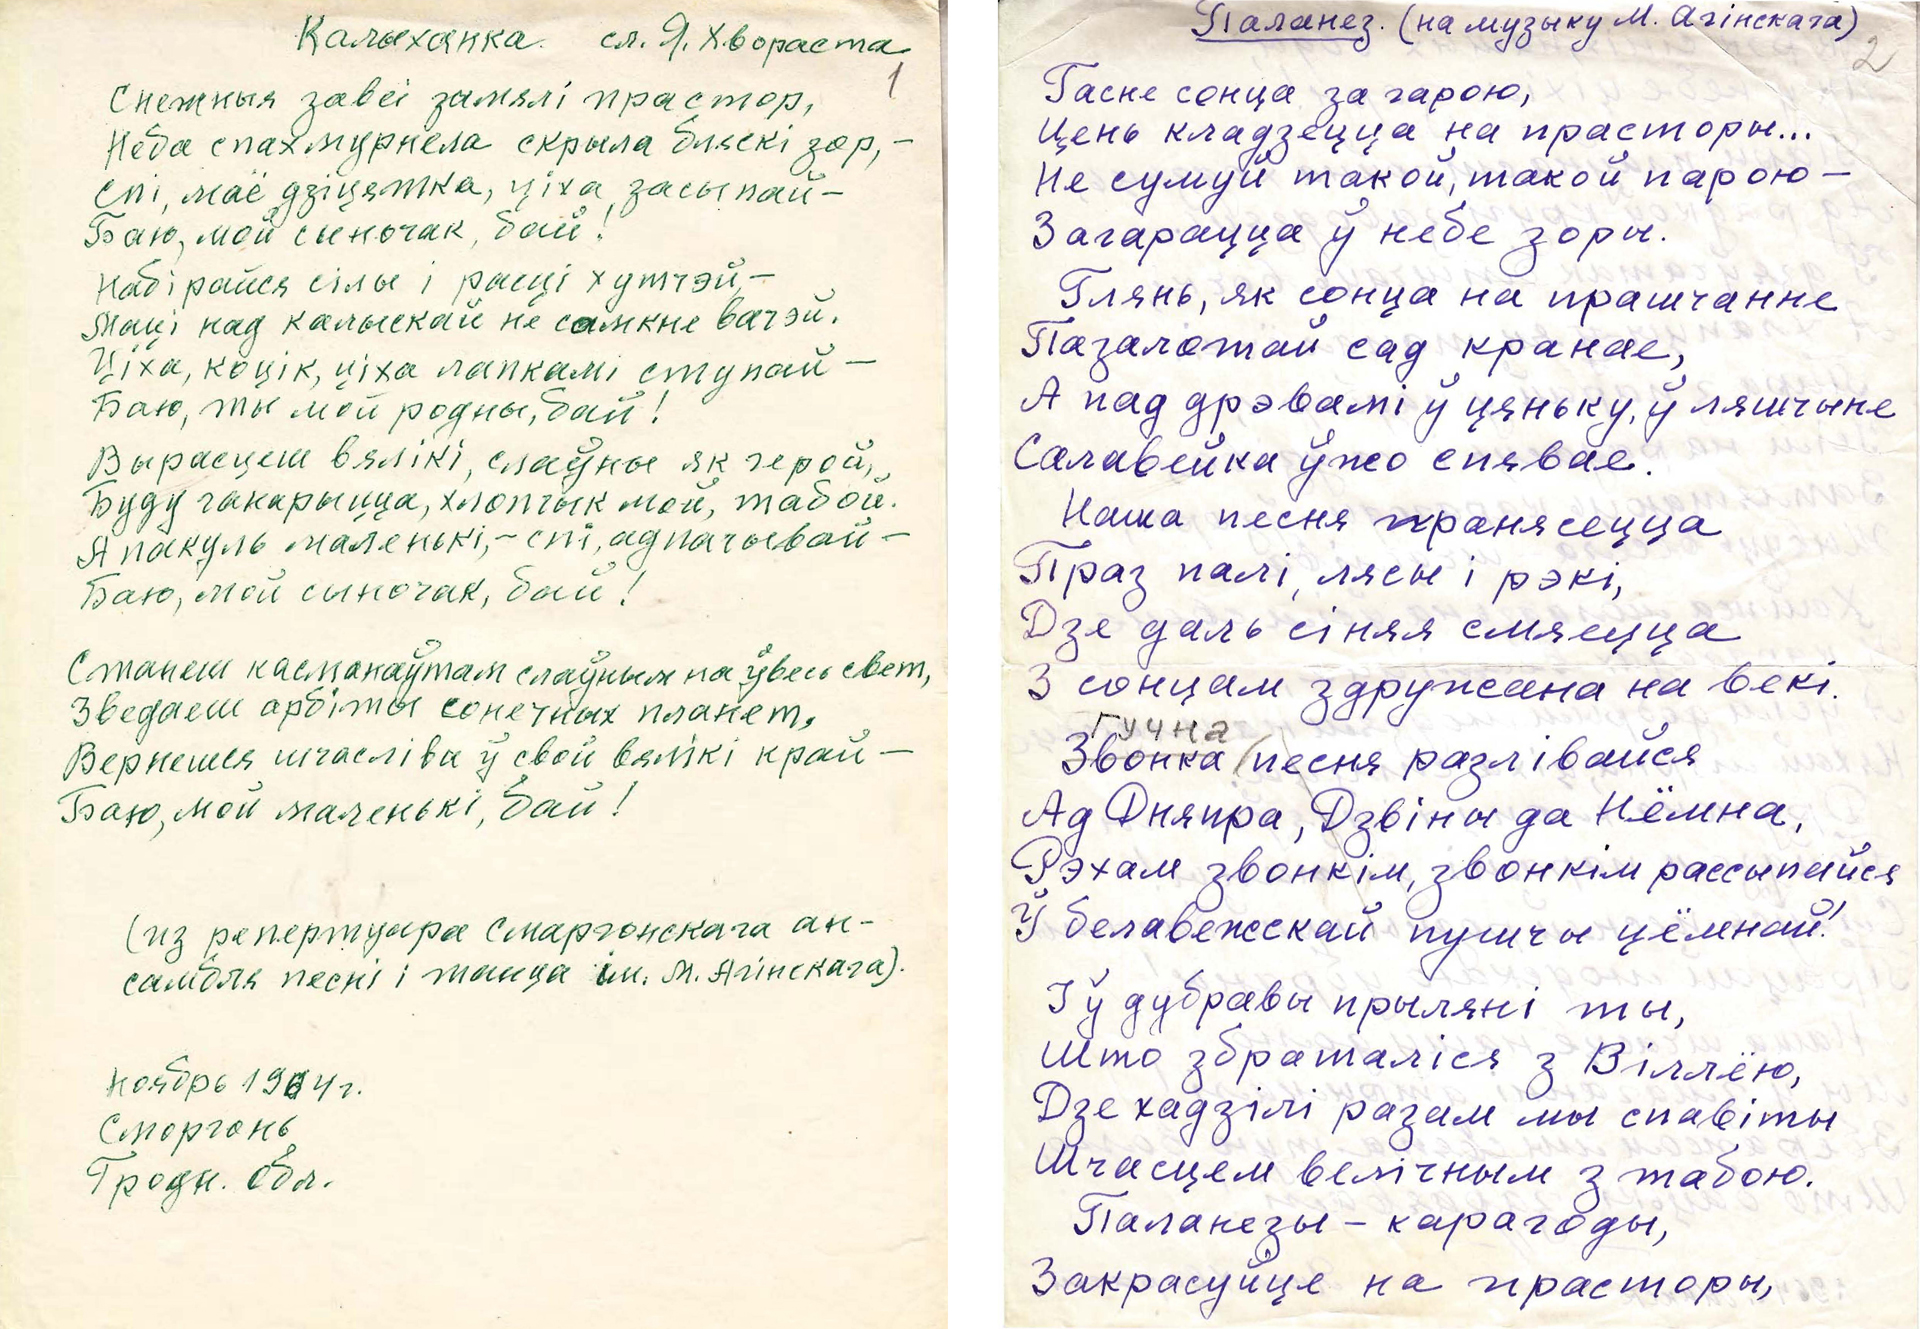 Калыханка. сл. Я. Хвораста
1
Снежныя завеі замялі прастор,
Неба спахмурнела скрыла бляскі зор,-
Спі, маё дзіцятка, ціха засыпай-
Баю, мой сыночак, бай!
Набірайся сілы і расці хутчэй,-
Маці над калыскай не самкне вачэй.
Ціха, коцік, ціха лапкамі ступай-
Баю, ты мой родны, бай!
Вырасцеш вялікі, слаўны як герой,
Буду ганарыцца, хлопчык мой, табой.
А пакуль маленькі,- спі, адпачывай-
Баю, мой сыночак, бай!
Станеш касманаўтам слаўным на ўвесь свет,
Зведаеш арбіты сонечных планет,
Вернешся шчаслівы ў свой вялікі край-
Баю, мой маленькі, бай!
(из репертуара Смаргонскага ан-
самбля песні і танца ім. М. Агінскага).
Ноябрь 1964 г.
Сморгонь
Гродн. обл.
Паланез. (на музыку М. Агінскага)
2
Гасне сонца за гарою,
Цень кладзецца на прасторы...
Не сумуй такой, такой парою-
Загарацца ў небе зоры.
Глянь, як сонца на прашчанне
Пазалотай сад кранае,
А пад дрэвамі ў цяньку, ў ляшчыне
Салавейка ўжо спявае.
Наша песня пранясецца
Праз палі, лясы і рэкі,
Дзе даль сіняя смяецца
З сонцам здружана на векі.
гучна
Звонка песня разлівайся
Ад Дняпра, Дзвіны да Нёмна,
Рэхам звонкім, звонкім рассыпайся
Ў белавежскай пушчы цёмнай!
І ў дубравы прыляні ты,
Што збраталіся з Віллёю,
Дзе хадзілі разам мы спавіты
Шчасцем велічным з табою.
Паланезы - карагоды,
Закрасуйце на прасторы,